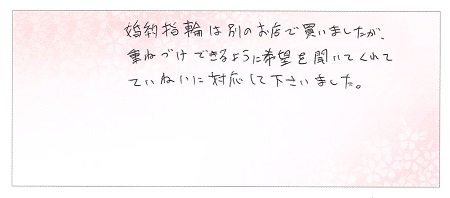 婚約指輪は別のお店で買いましたが、
重ねづけできるように希望を聞いてくれて
ていねいに対応して下さいました。